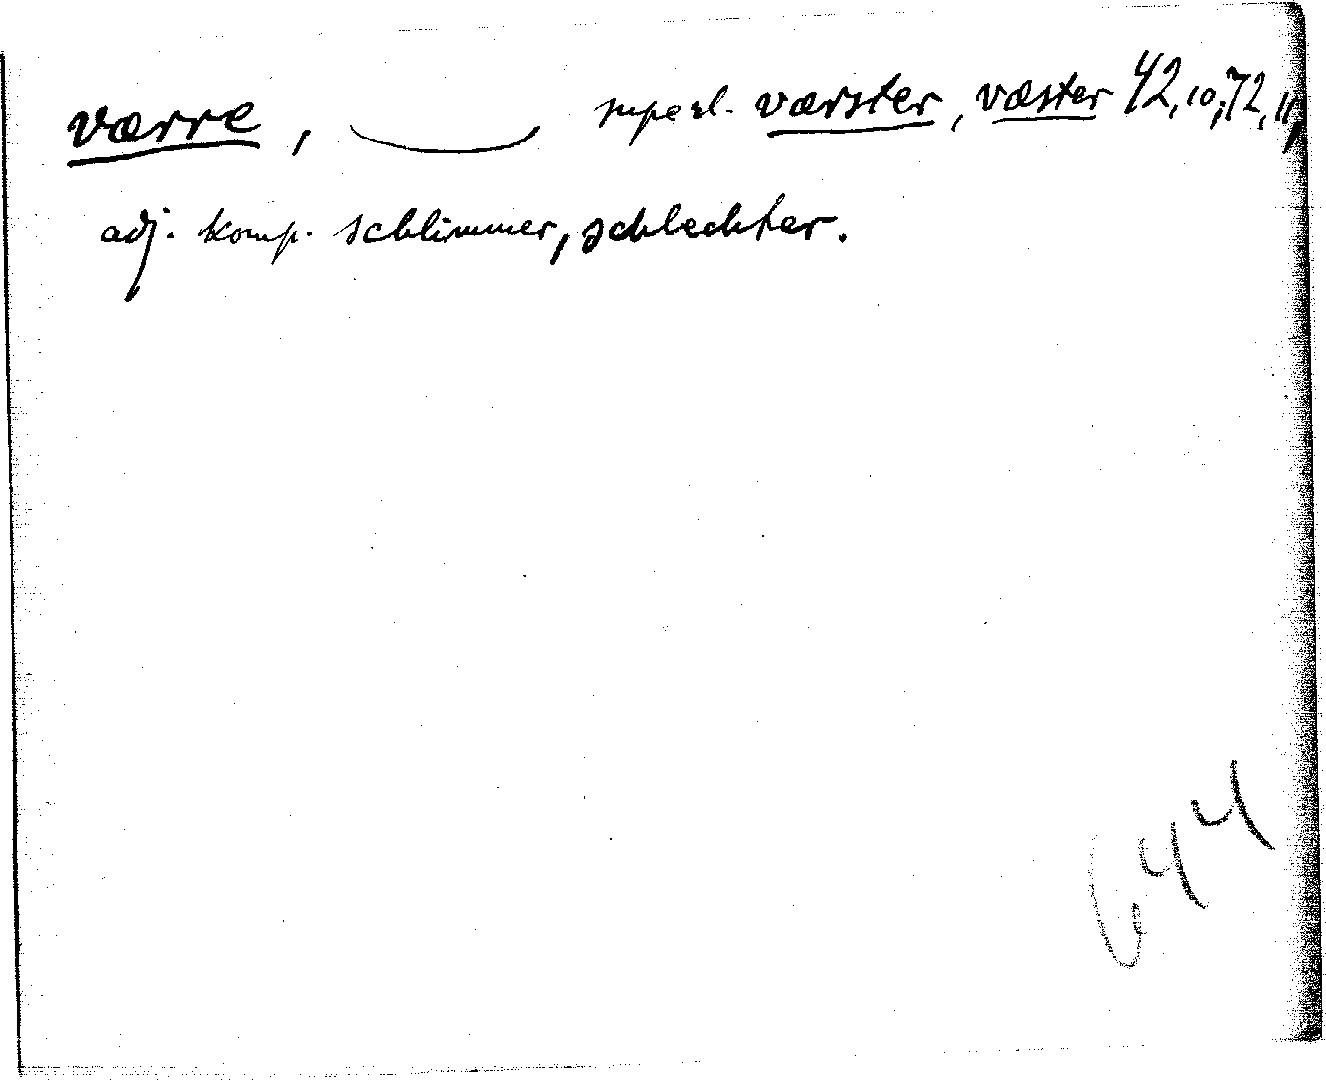 værre, superl. værster, væster 42,10; 72,11,
adj. komp. schlimmer, schlechter.
644